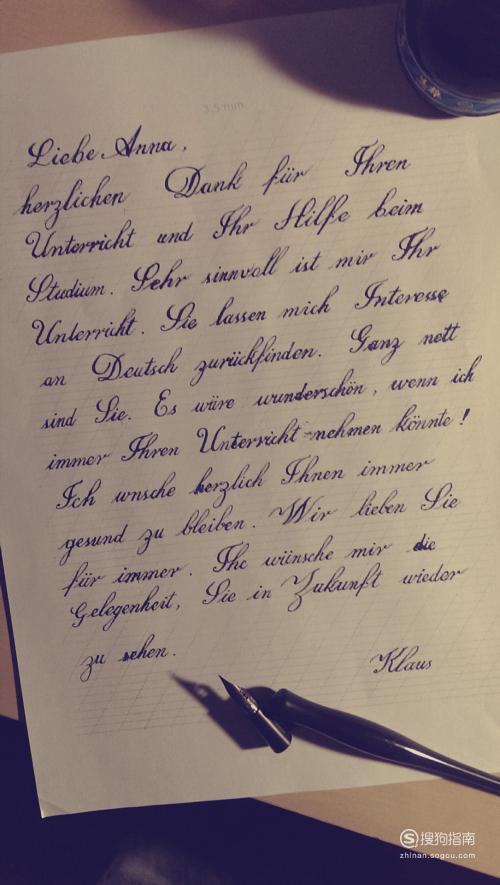 3.5 mm
Liebe Anna,
herzlichen Dank für Ihren
Unterricht und Ihr Hilfe beim
Studium. Sehr sinnvoll ist mir Ihr
Unterricht. Sie lassen mich Interesse
an Deutsch zurückfinden. Ganz nett
sind Sie. Es wäre wunderschön, wenn ich
immer Ihren Unterricht-nehmen könnte!
Ich wnsche herzlich Ihnen immer
gesund zu bleiben. Wir lieben Sie
für immer. Ihc wünsche mir die
Gelegenheit, Sie in Zukunft wieder
zu sehen.
Klaus
搜狗指南
zhinan.sogou.com